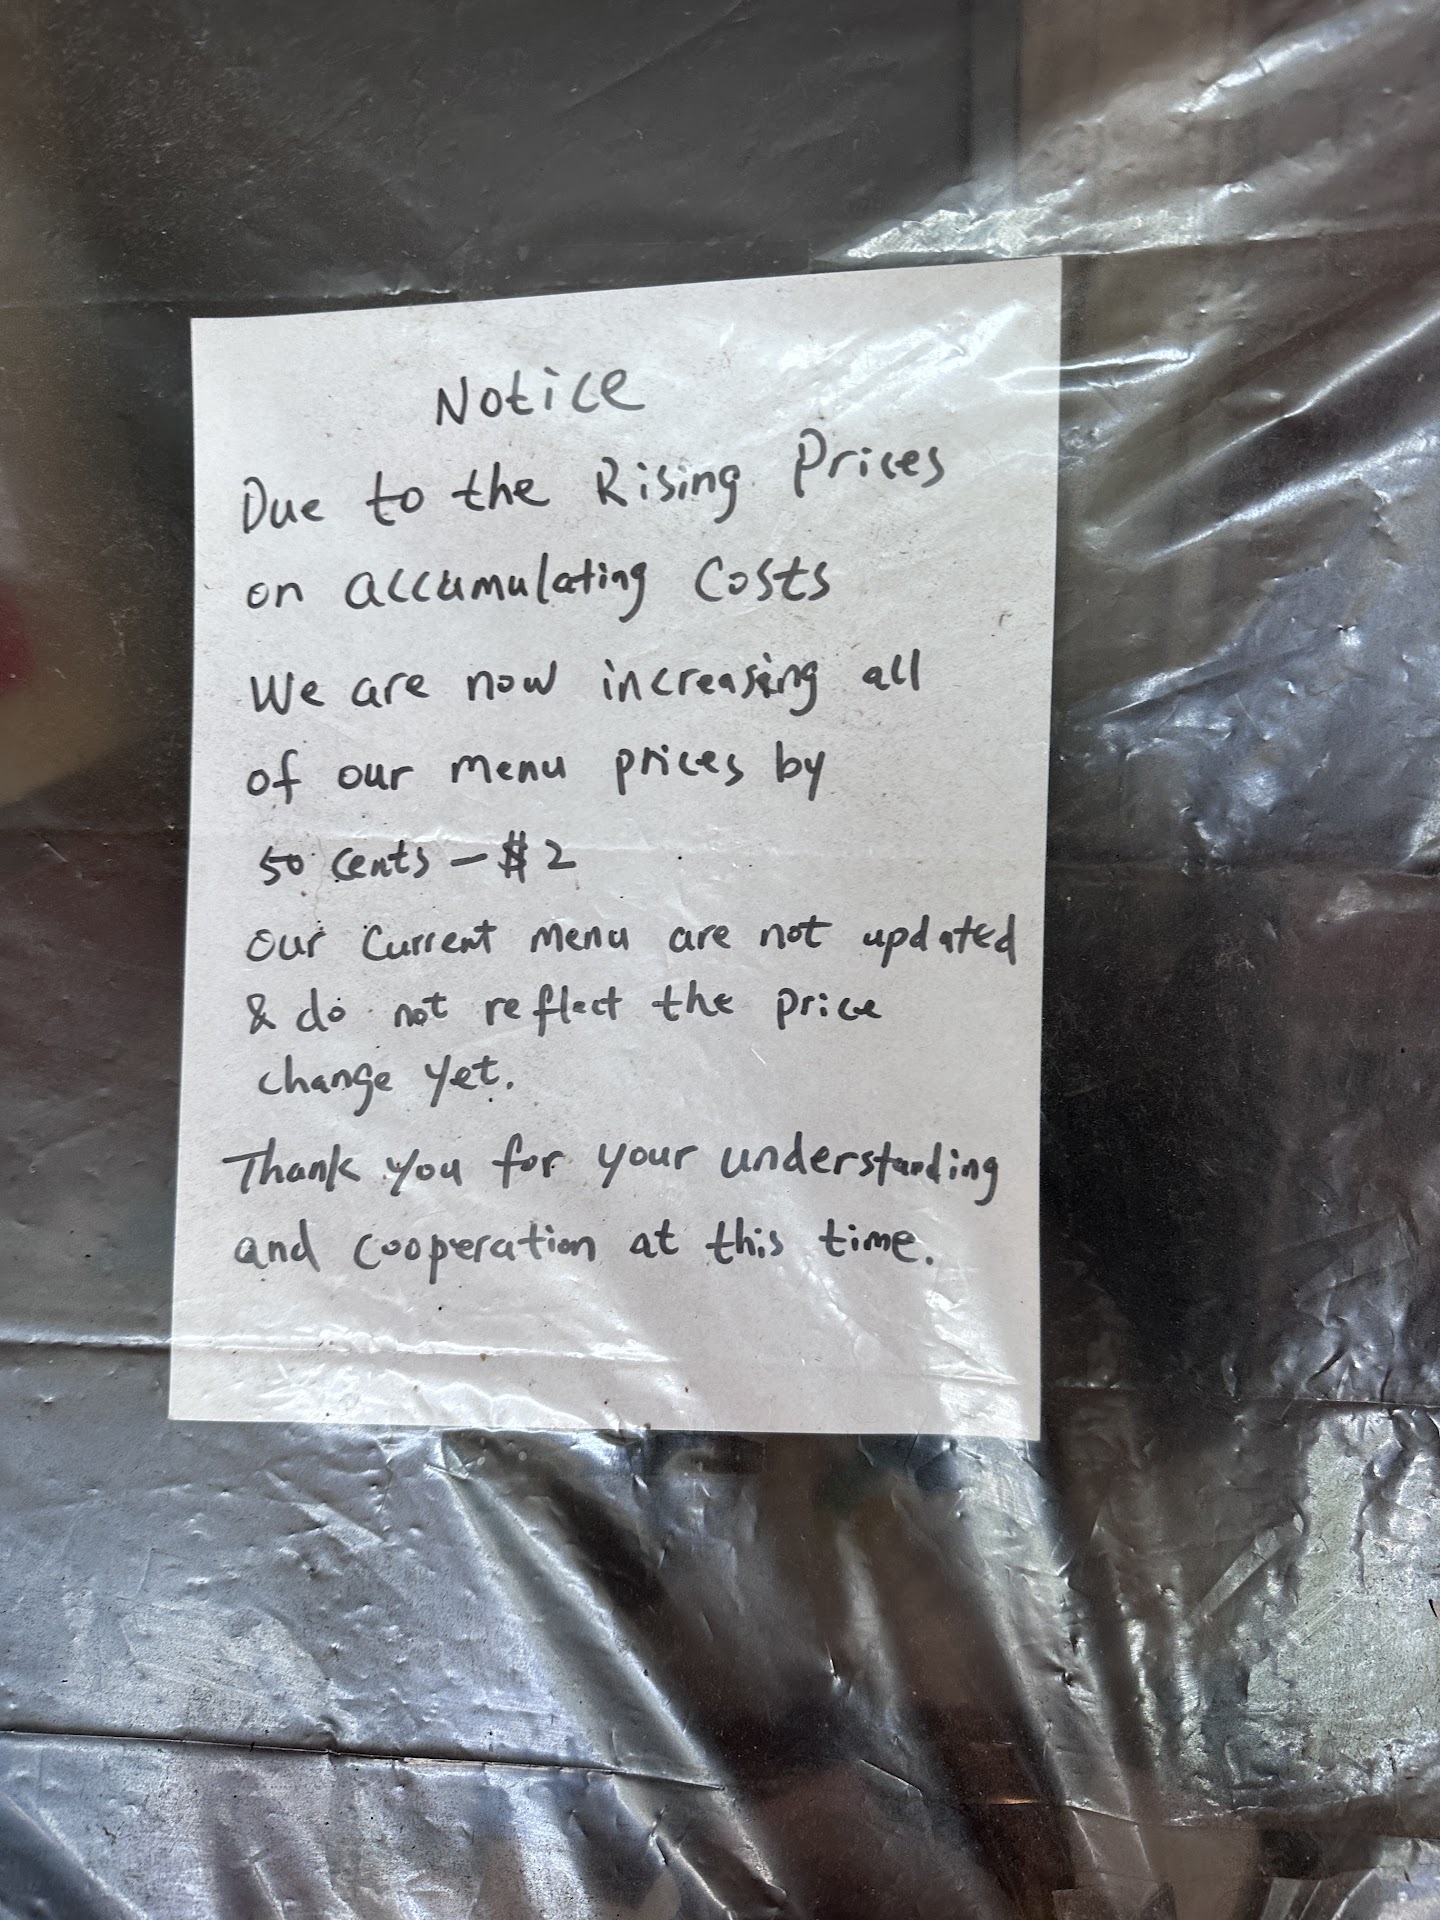 Notice
Due to the Rising Prices
on accumulating Costs
We are now increasing all
of our menu prices by
50 cents - $2
Our Current menu are not updated
& do not reflect the price
change yet.
Thank you for your understanding
and cooperation at this time.